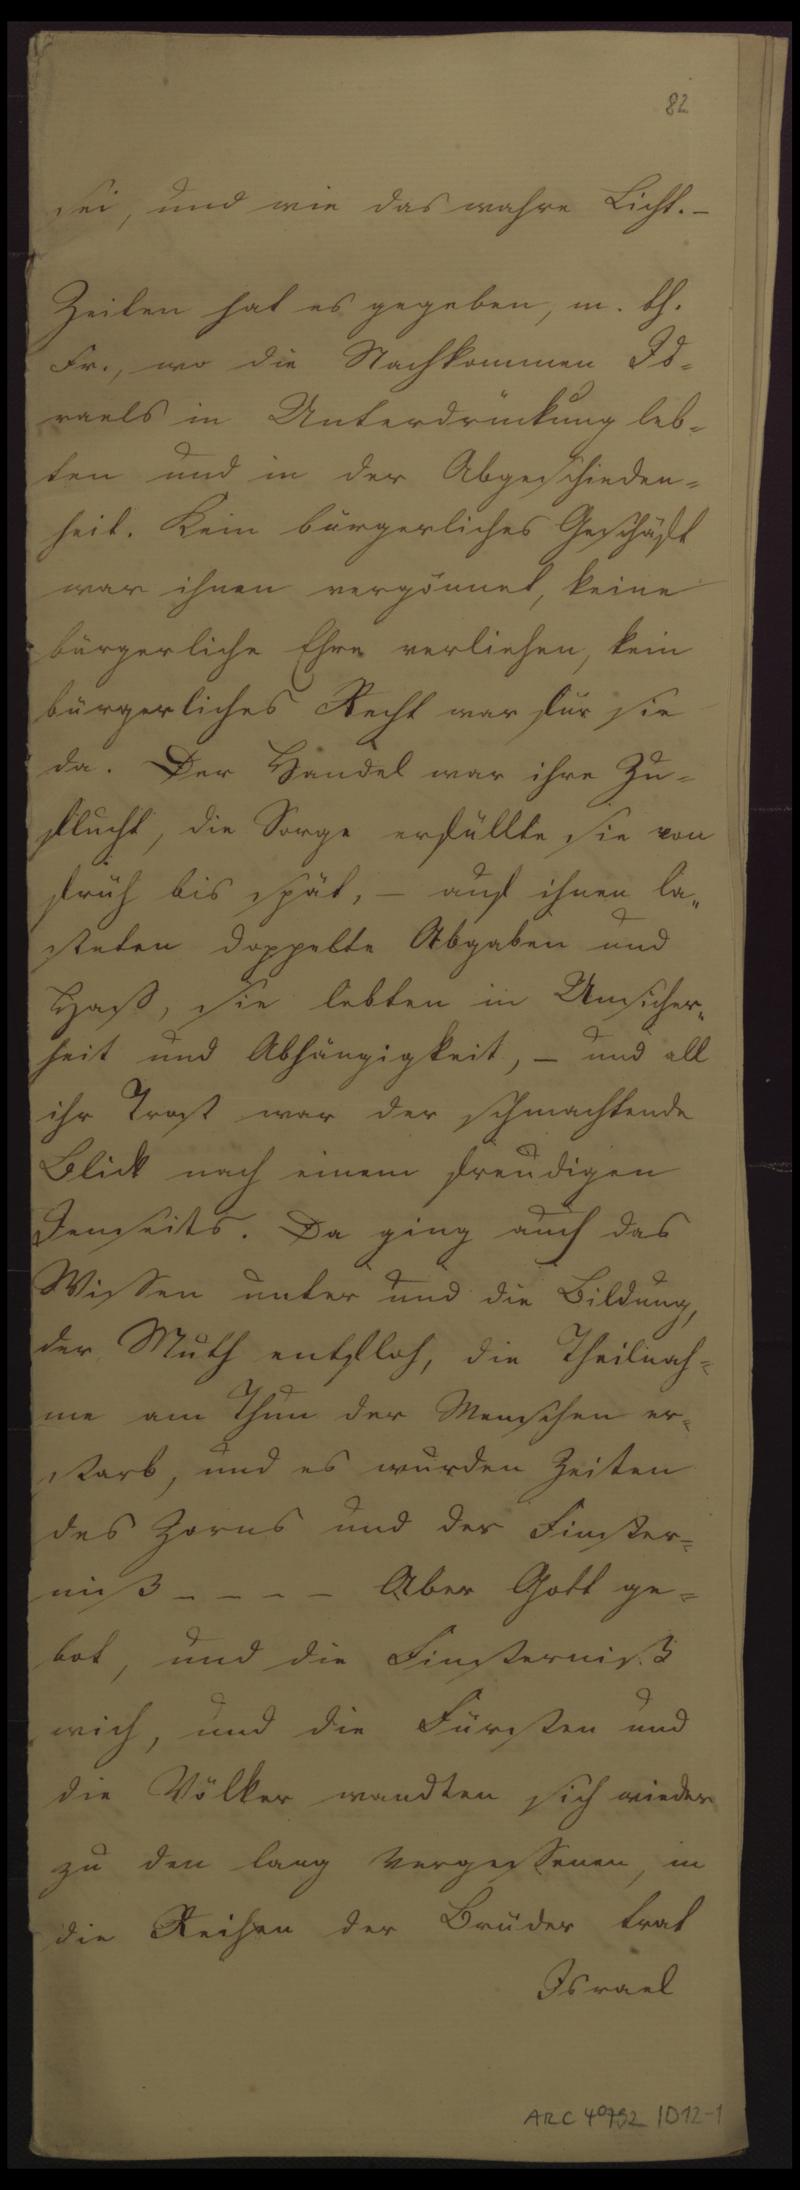 82
sei, und wie das wahre Licht. –
Zeiten hat es gegeben, m. th.
Fr., wo die Nachkommen Is-
raels in Unterdrückung leb-
ten und in der Abgeschieden-
heit. Kein bürgerliches Geschäft
war ihnen vergönnet, keine
bürgerliche Ehre verliehen, kein
bürgerliches Recht war für sie
da. Der Handel war ihre Zu-
flucht, die Sorge erfüllte sie von
früh bis spät, – auf ihnen la-
steten doppelte Abgaben und
Haß, sie lebten in Unsicher-
heit und Abhängigkeit, – und all
ihr Trost war der schmachtende
Blick nach einem freudigen
Jenseits. Da ging auch das
Wissen unter und die Bildung,
der Muth entfloh, die Theilnah-
me am Thun der Menschen er-
starb, und es wurden Zeiten
des Zorns und der Finster-
niß – – – – Aber Gott ge-
bot, und die Finsterniß
wich, und die Fürsten und
die Völker wandten sich wieder
zu den lang vergessenen, in
die Reihen der Brüder trat
Israel
ARC 4°792 / D12-1